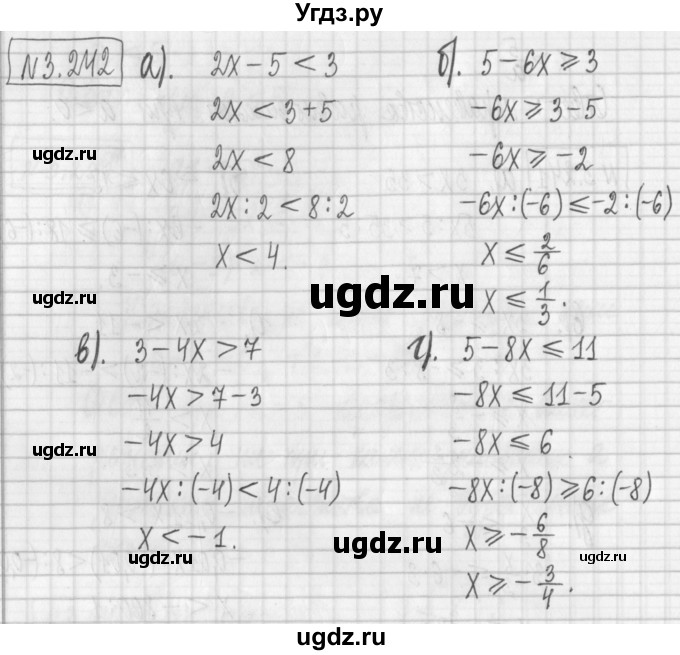 Угдз.ру
№3.242 а). 2x - 5 < 3
2x < 3 + 5
2x < 8
2x : 2 < 8 : 2
x < 4.
б). 5 - 6x ⩾ 3
-6x ⩾ 3 - 5
-6x ⩾ -2
-6x : (-6) ⩽ -2 : (-6)
x ⩽ 2/6
x ⩽ 1/3.
в). 3 - 4x > 7
-4x > 7 - 3
-4x > 4
-4x : (-4) < 4 : (-4)
x < -1.
г). 5 - 8x ⩽ 11
-8x ⩽ 11 - 5
-8x ⩽ 6
-8x : (-8) ⩾ 6 : (-8)
x ⩾ -6/8
x ⩾ -3/4.
ugdz.ru
ugdz.ru
ugdz.ru
ugdz.ru
ugdz.ru
ugdz.ru
ugdz.ru
ugdz.ru